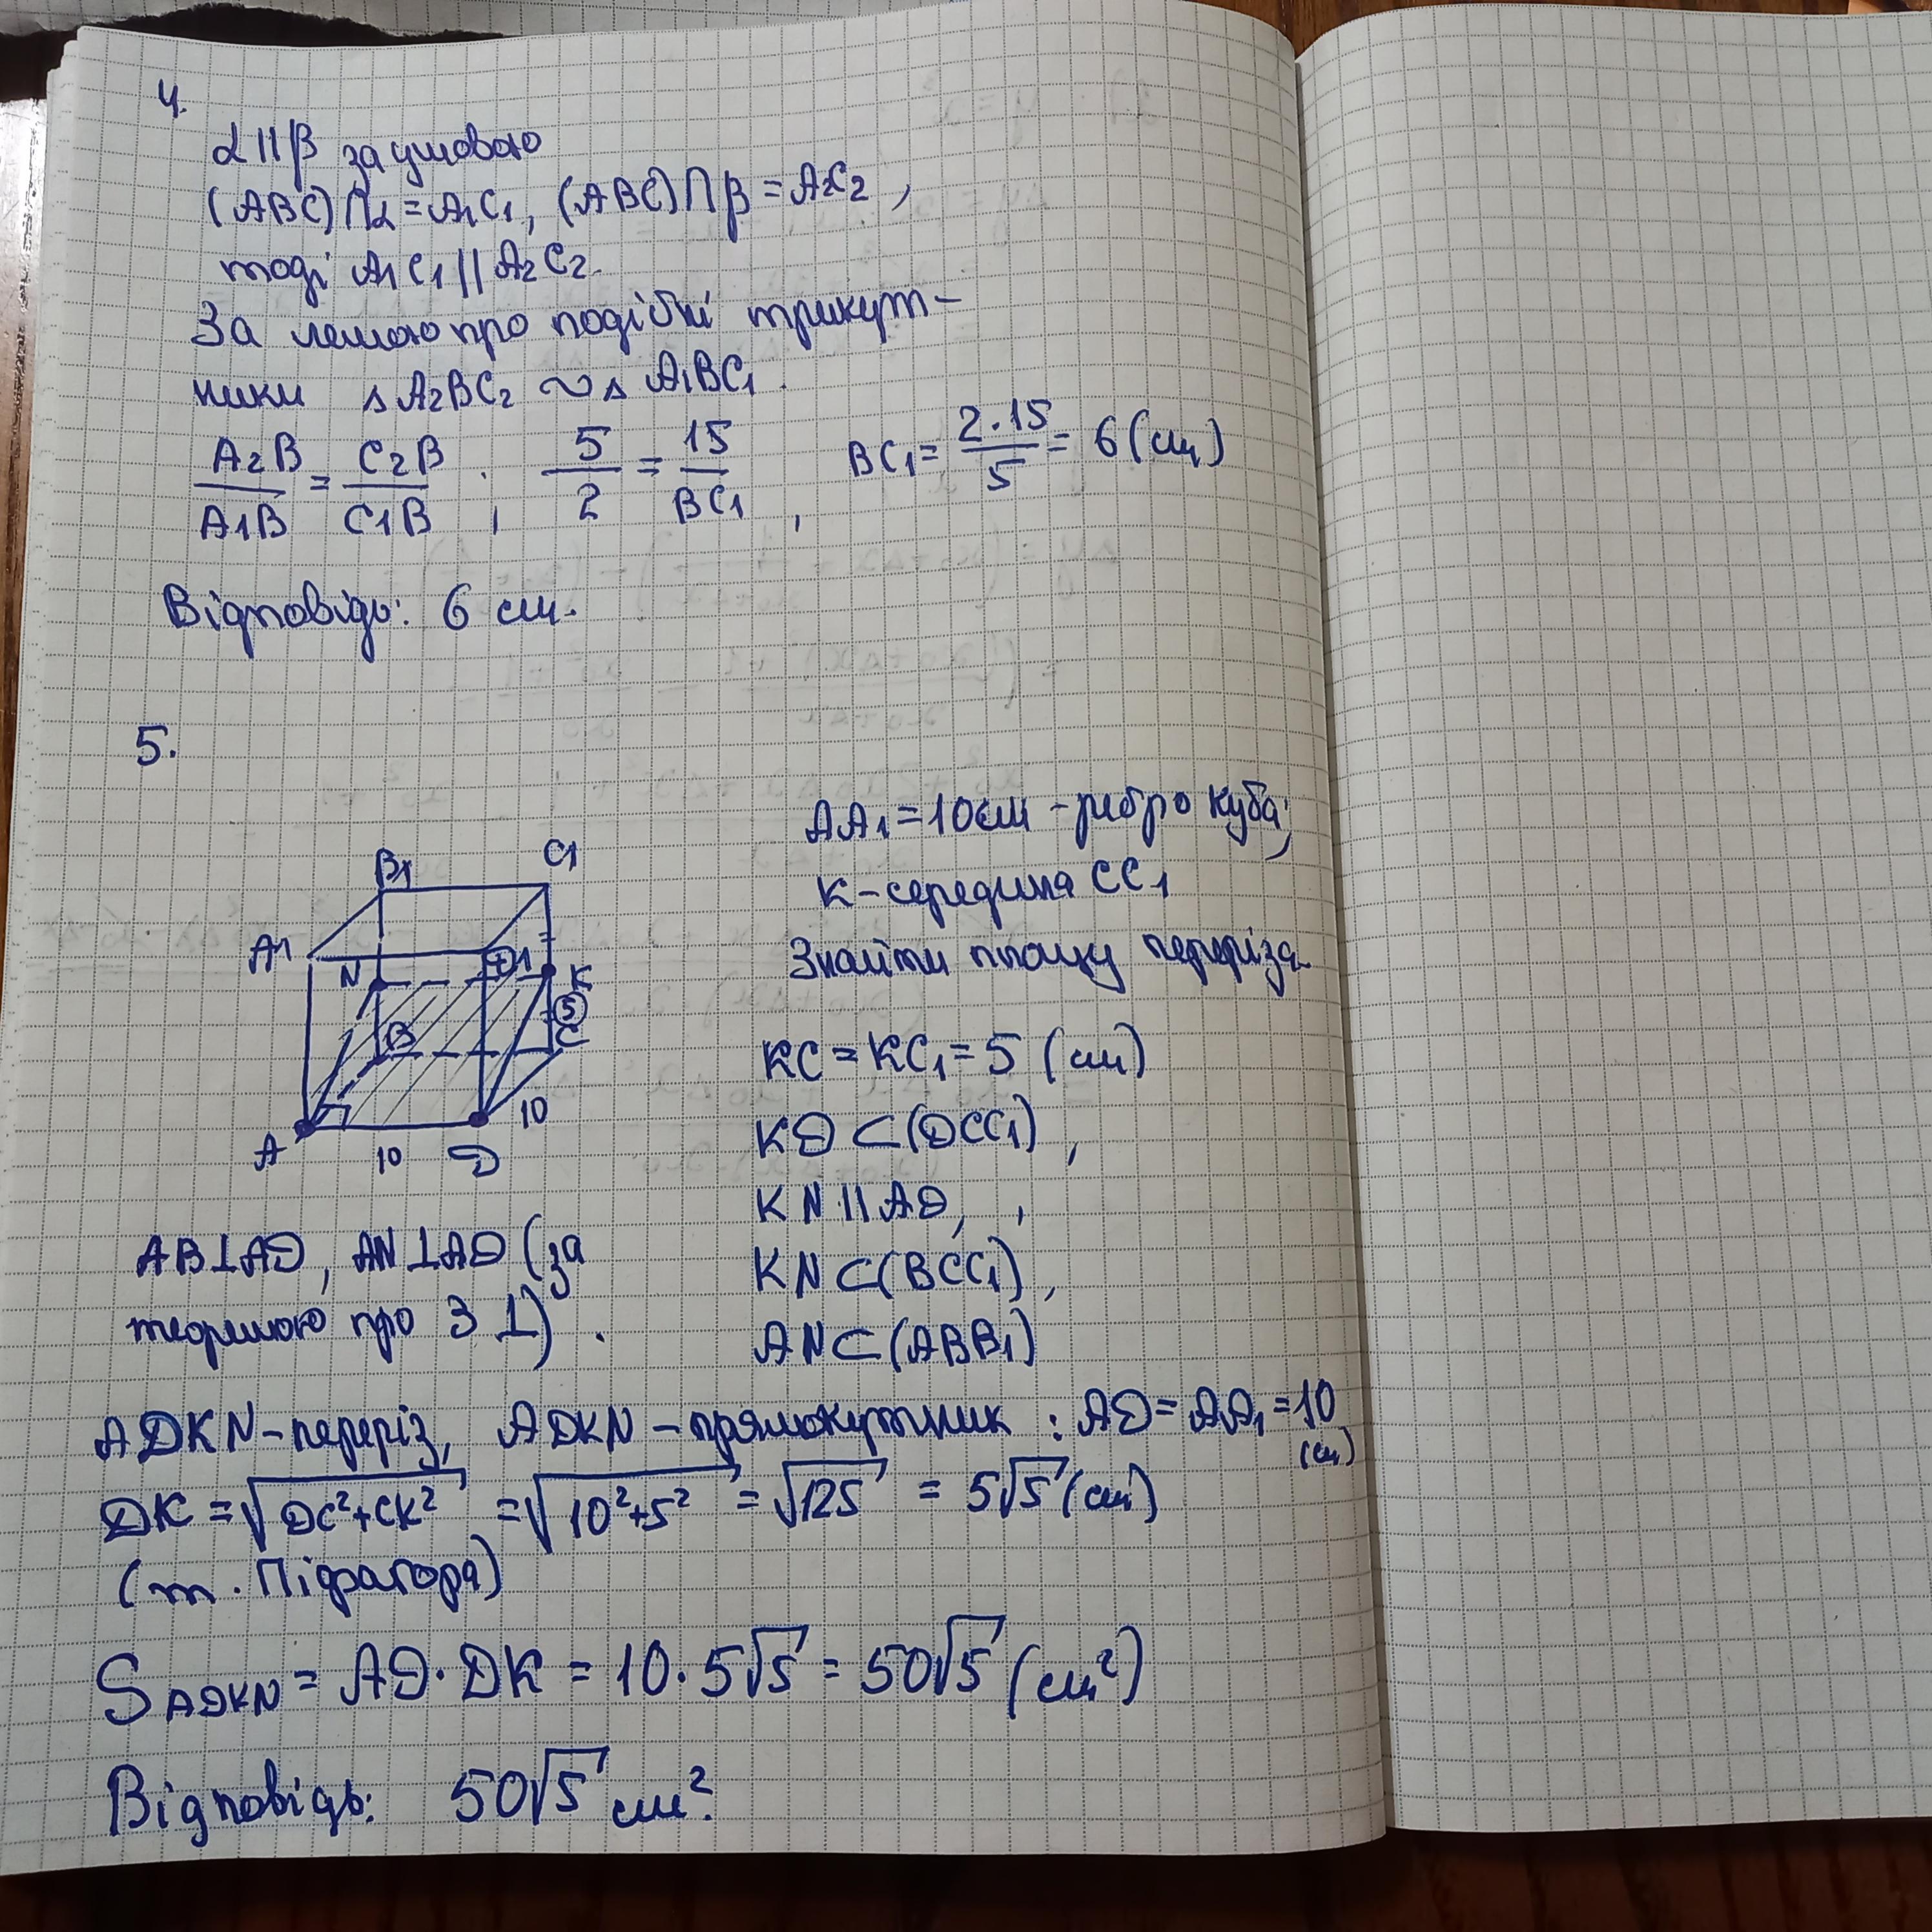 4.
α || β за умовою
(ABC)∩α = A₁C₁, (ABC)∩β = A₂C₂,
тоді A₁C₁ || A₂C₂.
За лемою про подібні трикут-
ники △A₂BC₂ ∾ △A₁BC₁.
A₂B/A₁B = C₂B/C₁B; 5/2 = 15/BC₁, BC₁ = 2·15/5 = 6 (см)
Відповідь: 6 см.
5.
AA₁ = 10 см - ребро куба;
K - середина CC₁
Знайти площу переріза.
B₁ C₁
A₁ D₁
N K
5
B C
10
A 10 D
KC = KC₁ = 5 (см)
KD ⊂ (DCC₁),
KN || AD, ,
KN ⊂ (BCC₁),
AN ⊂ (ABB₁)
AB⊥AD, AN⊥AD (за
теоремою про 3 ⊥).
ADKN - переріз, ADKN - прямокутник : AD = AA₁ = 10
(см)
DK = √(DC²+CK²) = √(10²+5²) = √125 = 5√5 (см)
(т. Піфагора)
S ADKN = AD·DK = 10·5√5 = 50√5 (см²)
Відповідь: 50√5 см².